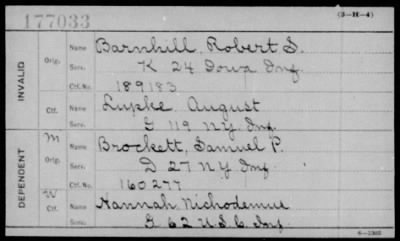 177033 (3-H-4)
INVALID
Orig. Name Barnhill, Robert S.
Serv. K 24 Iowa Inf.
Ctf. No. 189183
Ctf. Name Lupke, August
Serv. G 119 N.Y. Inf.
DEPENDENT
M Orig. Name Brockett, Samuel P.
Serv. D 27 N.Y. Inf.
Ctf. No. 160277
W Ctf. Name Hannah Nichodemue
Serv. G 62 U.S.C. Inf.